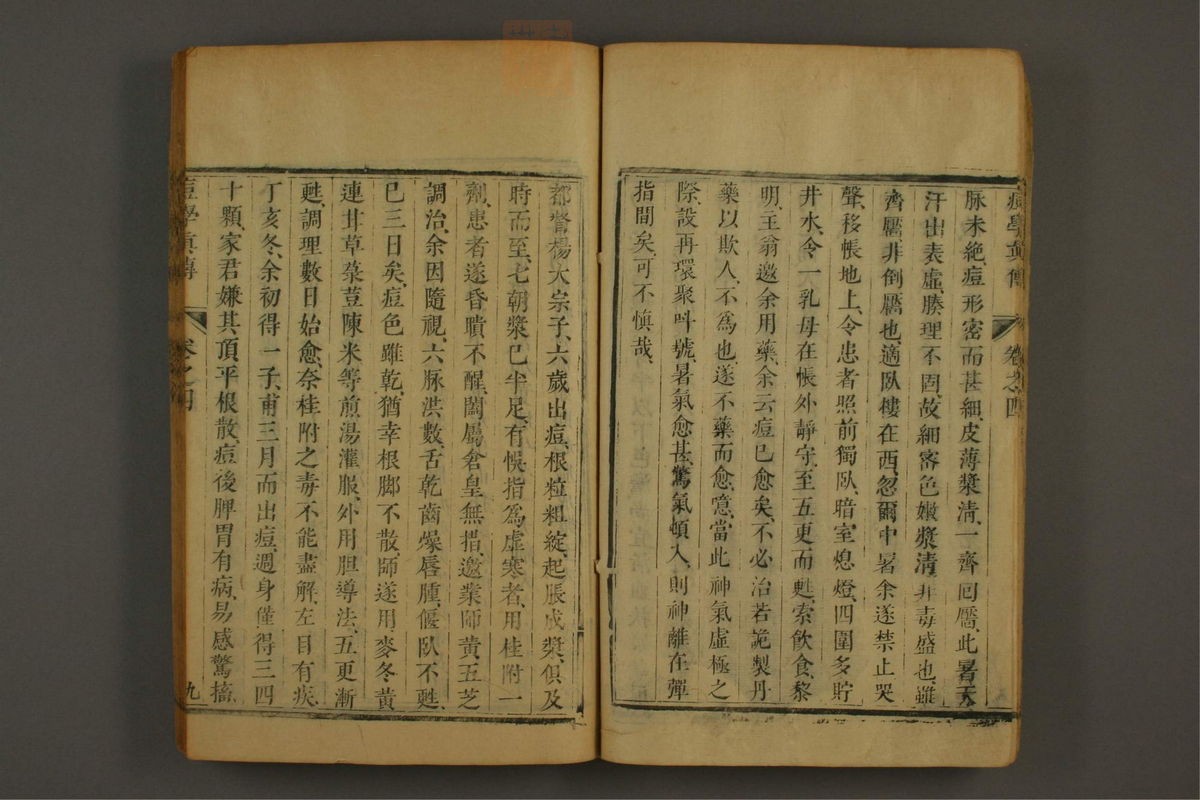 痘學眞傳 卷之四
脉未絶、痘形密而甚細、皮薄漿清、一齊囘靨、此暑天
汗出表虛、腠理不固、故細密色嫩漿清、非毒盛也、雖
齊靨、非倒靨也、適臥樓在西、忽爾中暑、余遂禁止哭
聲、移帳地上、令患者照前獨臥、暗室熄燈、四圍多貯
井水、令一乳母在帳外靜守、至五更而甦、索飮食、黎
明、王翁邀余用藥、余云痘已愈矣、不必治、若詭製丹
藥以欺人、不爲也、遂不藥而愈、噫、當此神氣虛極之
際、設再環聚呌號、暑氣愈甚、驚氣頓入、則神離在彈
指間矣、可不愼哉、
都督楊大宗子、六歲出痘、根粒粗綻、起脹成漿、俱及
時而至、七朝漿已半足、有悞指爲虛寒者、用桂附一
劑、患者遂昏聵不醒、闔屬倉皇無措、邀業師黃五芝
調治、余因隨視、六脉洪數、舌乾齒燥、唇腫、偃臥不甦、
已三日矣、痘色雖乾、猶幸根脚不散、師遂用麥冬黃
連甘草菉荳陳米等煎湯灌服、外用胆導法、五更漸
甦、調理數日始愈、奈桂附之毒不能盡解、左目有疾、
丁亥冬、余初得一子、甫三月而出痘、週身僅得三四
十顆、家君嫌其頂平根散、痘後脾胃有病、易感驚搐、
痘學眞傳 卷之四 九